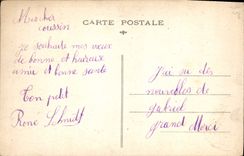 CARTE POSTALE
Mon cher
coussin
Je souhaite mes vœux
de bonne et heureuse
année et bonne santé
Ton petit
René Schmidt
J'ai eu des
nouvelles de
gabriel
grand Merci